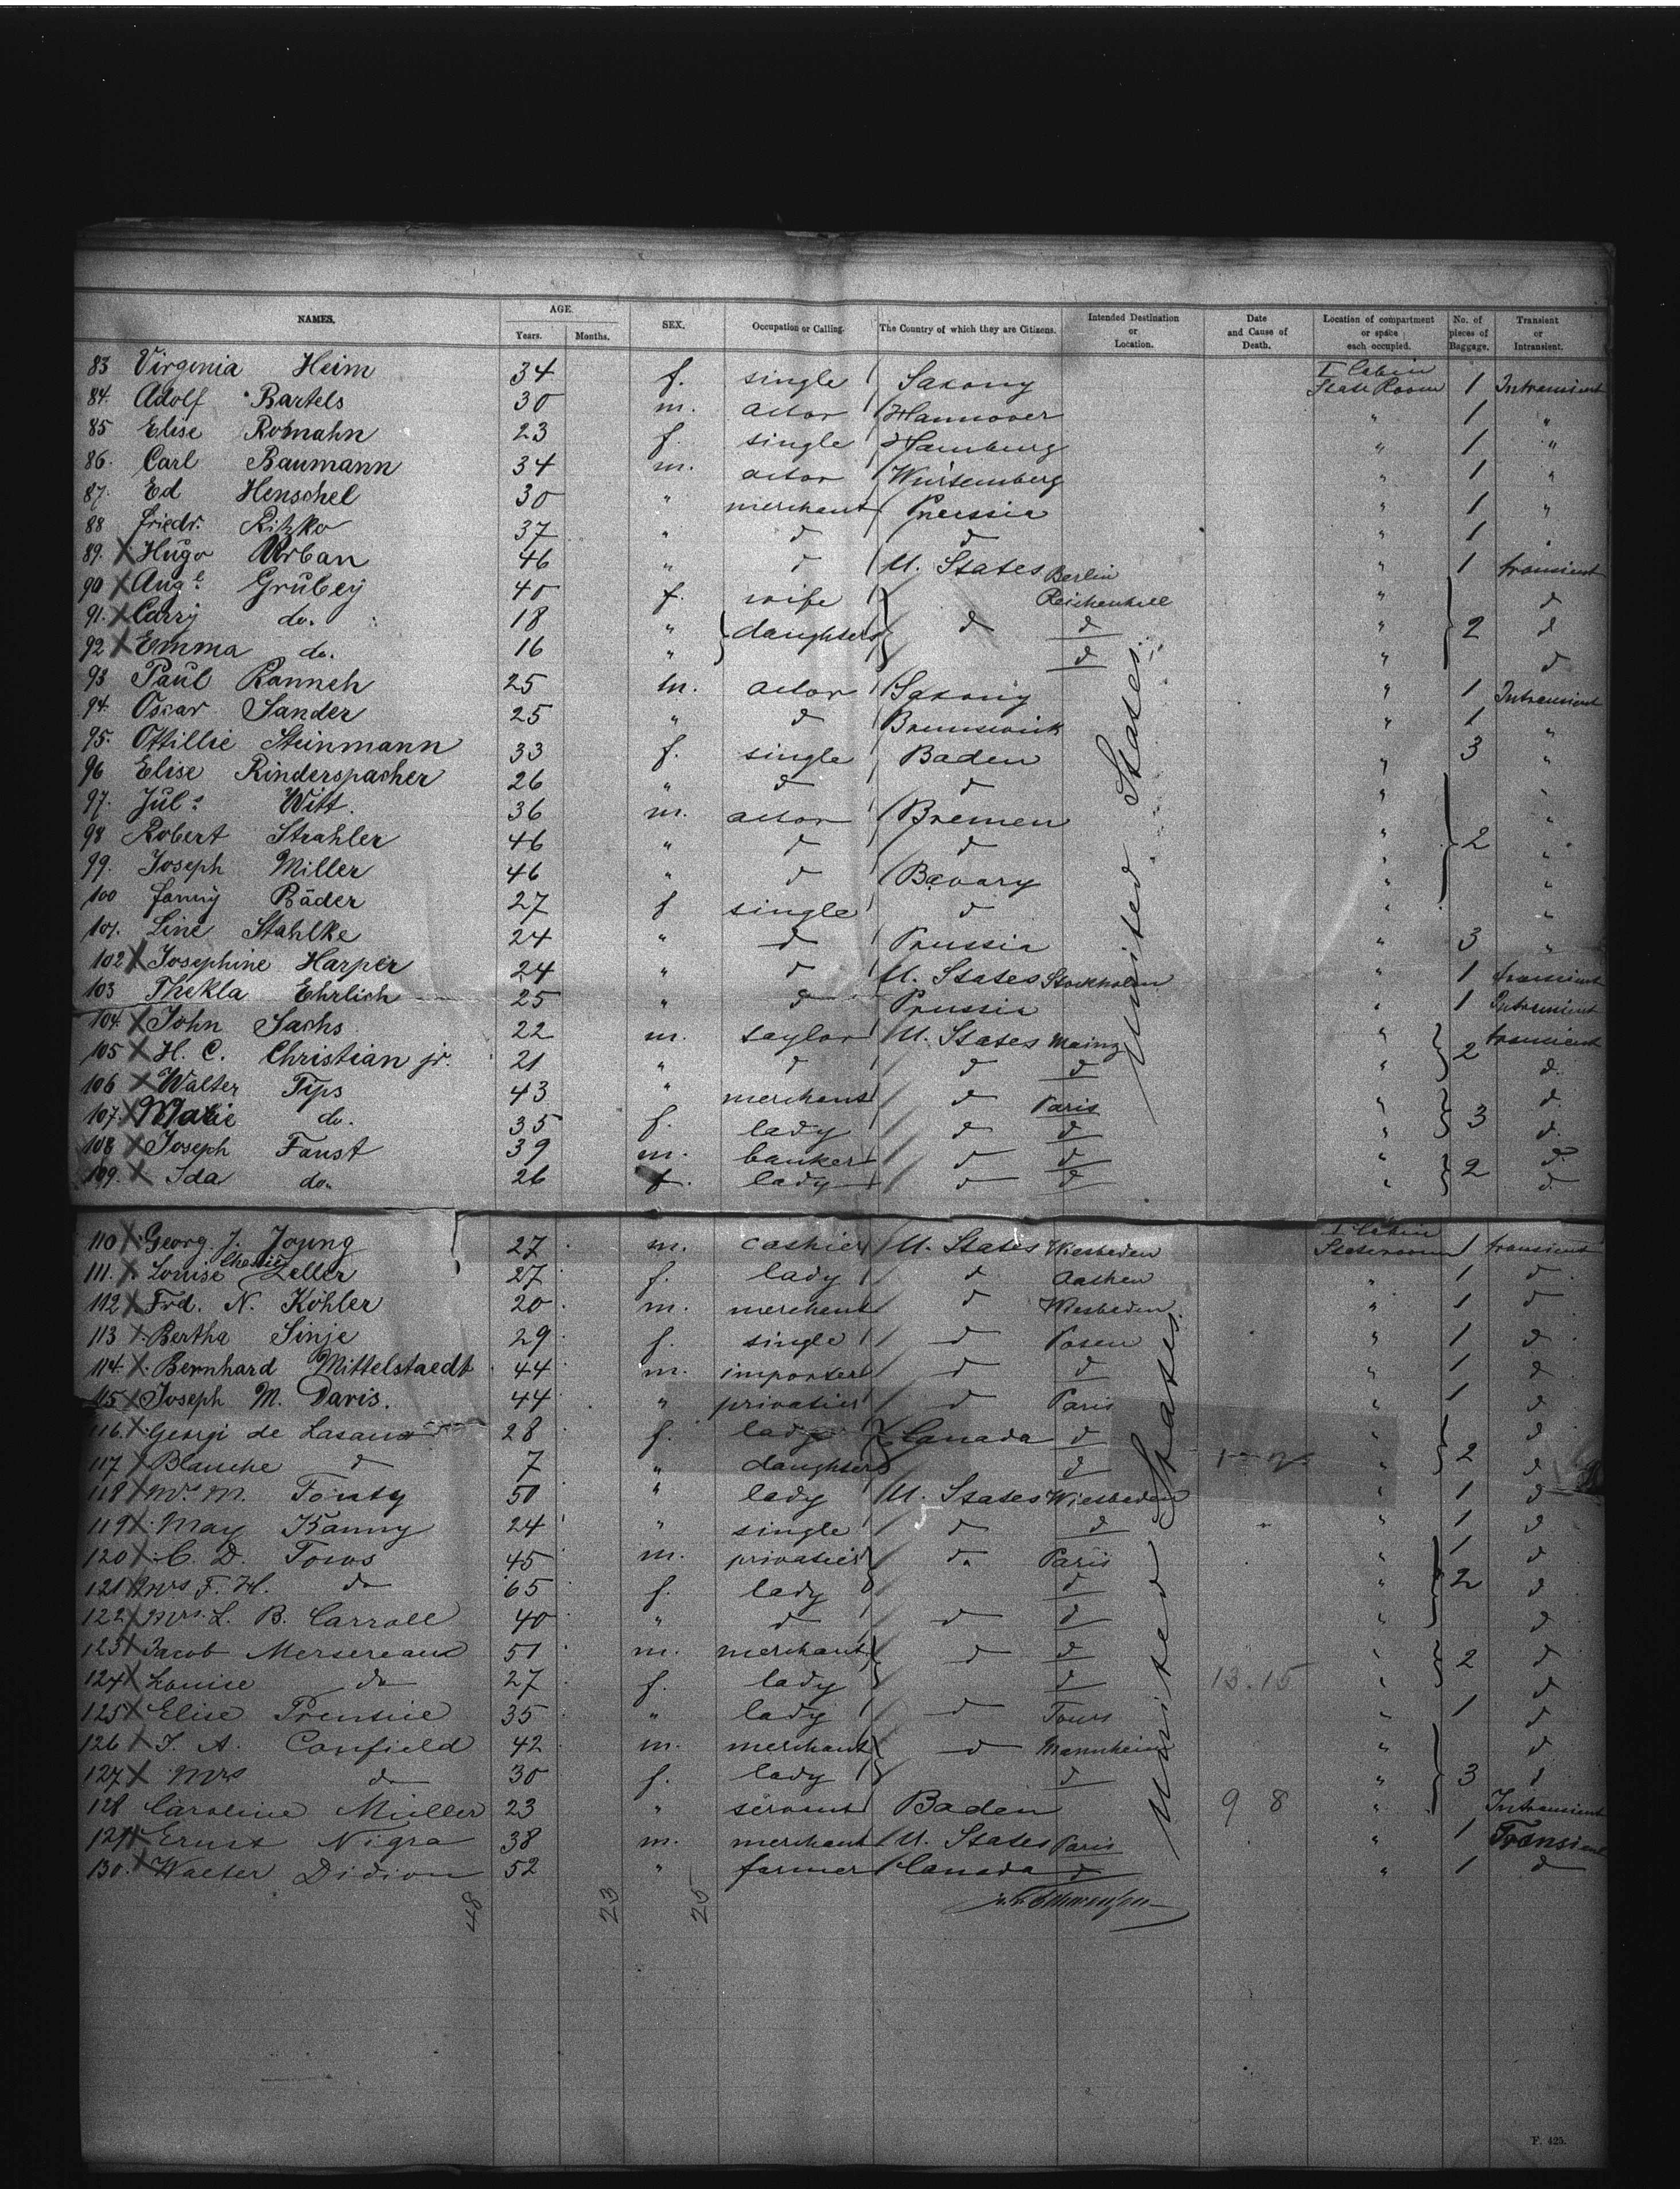 NAMES. AGE. Years. Months. SEX. Occupation or Calling. The Country of which they are Citizens. Intended Destination or Location. Date and Cause of Death. Location of compartment or space each occupied. No. of pieces of Baggage. Transient or Intransient.
83 Virginia Heim 34 f. single Saxony I Cabin State Room 1 Intransient
84. Adolf Bartels 30 m. actor Hannover " 1 "
85 Elise Romahn 23 f. single Hamburg " 1 "
86. Carl Baumann 34 m. actor Würtemberg " 1 "
87. Ed Henschel 30 " merchant Prussia " 1 "
88 Friedr. Ritzko 37 " d d " 1 "
89. X Hugo Urban 46 " d U. States Berlin " 1 transient
90 X Aug. Grubey 40 f. wife Reichenhall " d
91. X Carry do. 18 " daughters d d " 2 d
92 X Emma do. 16 " d " d
93 Paul Ranneh 25 m. actor Saxony " 1 Intransient
94. Oscar Sander 25 " d Brunswick " 1 "
95. Ottilie Steinmann 33 f. single Baden " 3 "
96 Elise Rinderspacher 26 " d d " "
97. Jul. Witt. 36 m. actor Bremen " "
98 Robert Strahler 46 " d d " 2 "
99. Joseph Miller 46 " d Bavary " "
100 Fanny Bäder 27 f single d " "
101. Line Stahlke 24 " d Prussia " 3 "
102 X Josephine Harper 24 " d U. States Stockholm " 1 transient
103 Thekla Ehrlich 25 " d Prussia " 1 Intransient
104. X John Sachs 22 m. taylor U. States Mainz " transient
105 X H. C. Christian jr. 21 " d d d " 2 d.
106 X Walter Tips 43 " merchant d Paris " d.
107. X Marie do. 35 f. lady d d " 3 d.
108 X Joseph Faust 39 m. banker d d " d.
109. X Ida do. 26 f. lady d d " 2 d.
United States.
110 X Georg J. Joung 27 m. cashier U. States Wiesbaden I Cabin Stateroom 1 transient
111. X Louise Zeller 27 f. lady d Aachen " 1 d
112 X Frd. N. Köhler 20 m. merchant d Wiesbaden " 1 d
113 X Bertha Sinje 29 f. single d Posen " 1 d
114. X Bernhard Mittelstaedt 44 m. importer d d " 1 d
115 X Joseph M. Davis. 44 " privatier d Paris " 1 d
116. X Georgi de 28 f. lady Canada d " d
117 X Blanche d 7 " daughter d " 2 d
118 X Mrs. M. Fonty 50 " lady U. States Wiesbaden " 1 d
119 X May Kanny 24 " single d d " 1 d
120 X C. D. Tows 45 m. privatier d. Paris " d
121 X Mrs F. H. do 65 f. lady d " 2 d
122 X Mrs. L. B. Carroll 40 " d d d " d
123 X Jacob Mersereaux 51 m. merchant d d " 2 d
124 X Louise do 27 f. lady d 13.15 " d
125 X Elise 35 " lady d Tours " 1 d
126 X J. A. Canfield 42 m. merchant d Mannheim " d
127 X Mrs do 30 f. lady d " 3 d
128 Caroline Müller 23 " servant Baden 9 8 " Intransient
129 X Ernst Nigra 38 m. merchant U. States Paris " 1 Transient
130. X Walter Didion 52 " farmer Canada d " 1 d
United States.
48 23 25
F. 425.